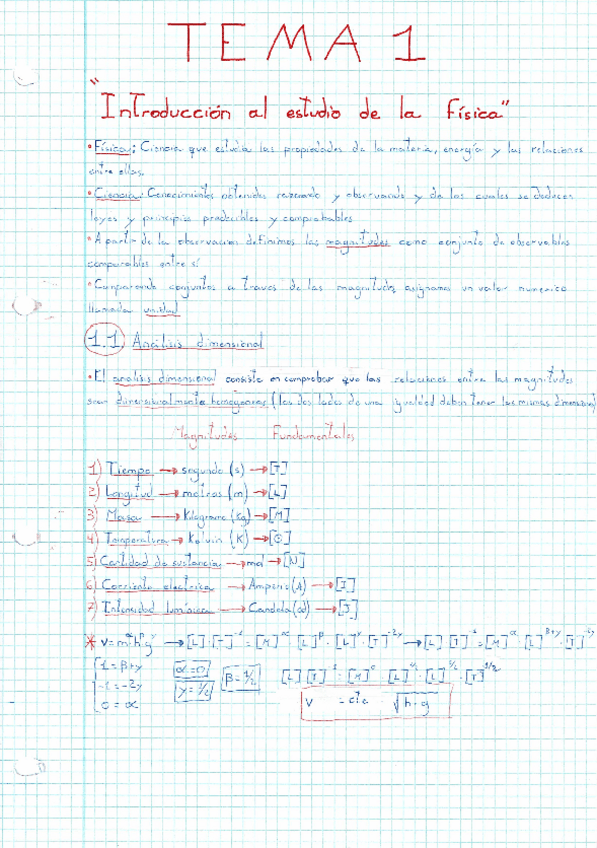 TEMA 1
"Introducción al estudio de la física"
• Física: Ciencia que estudia las propiedades de la materia, energía y las relaciones
entre ellas.
• Ciencia: Conocimientos obtenidos razonando y observando y de los cuales se deducen
leyes y principios predecibles y comprobables
• A partir de la observación definimos las magnitudes como conjunto de observables
comparables entre sí
• Comparando conjuntos a traves de las magnitudes asignamos un valor numerico
llamado unidad
1.1 Análisis dimensional
• El analisis dimensional consiste en comprobar que las relaciones entre las magnitudes
sean dimensionalmente homogéneas (los dos lados de una igualdad deben tener las mismas dimensiones)
Magnitudes Fundamentales
1) Tiempo → segundo (s) → [T]
2) Longitud → metros (m) → [L]
3) Masa → Kilogramo (Kg) → [M]
4) Temperatura → Kelvin (K) → [Θ]
5) Cantidad de sustancia → mol → [N]
6) Corriente electrica → Amperio (A) → [I]
7) Intensidad lumínica → Candela (cd) → [J]
* v = m^α h^β g^γ → [L]·[T]^-1 = [M]^α·[L]^β·[L]^γ·[T]^-2γ → [L]·[T]^-1 = [M]^α·[L]^β+γ·[T]^-2γ
1 = β+γ α=0 β=1/2 [L]·[T]^-1 = [M]^0·[L]^1/2·[L]^1/2·[T]^2/2
-1 = -2γ γ=1/2 v = cte · √h·g
0 = α